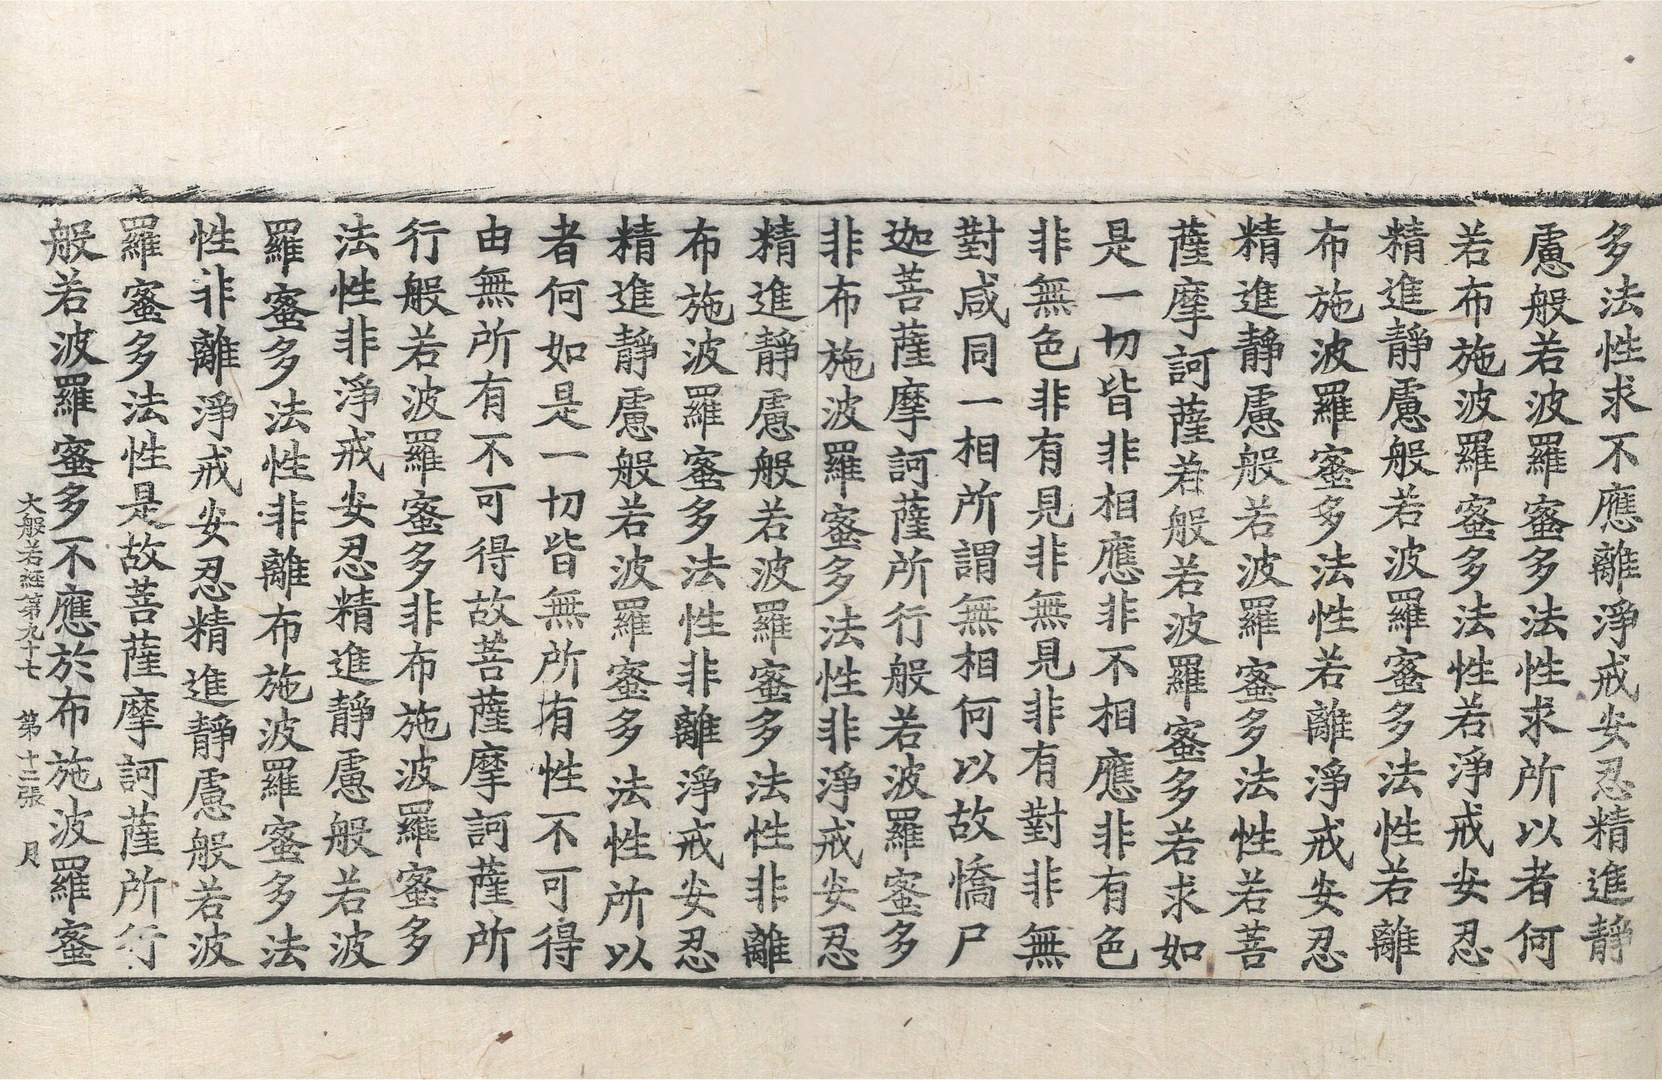 多法性求不應離淨戒安忍精進靜
慮般若波羅蜜多法性求所以者何
若布施波羅蜜多法性若淨戒安忍
精進靜慮般若波羅蜜多法性若離
布施波羅蜜多法性若離淨戒安忍
精進靜慮般若波羅蜜多法性若菩
薩摩訶薩若般若波羅蜜多若求如
是一切皆非相應非不相應非有色
非無色非有見非無見非有對非無
對咸同一相所謂無相何以故憍尸
迦菩薩摩訶薩所行般若波羅蜜多
非布施波羅蜜多法性非淨戒安忍
精進靜慮般若波羅蜜多法性非離
布施波羅蜜多法性非離淨戒安忍
精進靜慮般若波羅蜜多法性所以
者何如是一切皆無所有性不可得
由無所有不可得故菩薩摩訶薩所
行般若波羅蜜多非布施波羅蜜多
法性非淨戒安忍精進靜慮般若波
羅蜜多法性非離布施波羅蜜多法
性非離淨戒安忍精進靜慮般若波
羅蜜多法性是故菩薩摩訶薩所行
般若波羅蜜多不應於布施波羅蜜
大般若經第九十七 第十二張 月